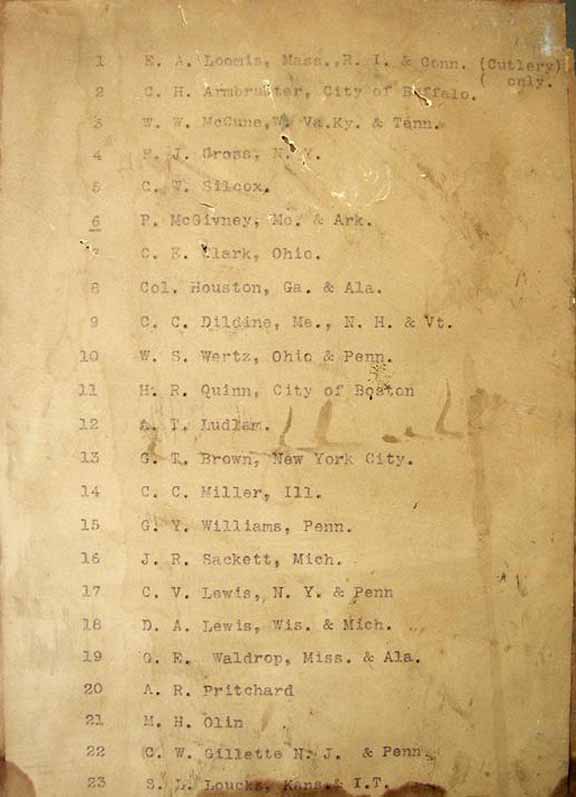 1 E. A. Loomis, Mass., R. I. & Conn. (Cutlery)
( only.
2 C. H. Armbruster, City of Buffalo.
3 W. W. McCune, W. Va. Ky. & Tenn.
4 J. Gross, N. Y.
5 C. W. Silcox.
6 P. McGivney, Mo. & Ark.
7 C. E. Clark, Ohio.
8 Col. Houston, Ga. & Ala.
9 C. C. Dildine, Me., N. H. & Vt.
10 W. S. Wertz, Ohio & Penn.
11 H. R. Quinn, City of Boston
12 T. Ludlam.
13 G. T. Brown, New York City.
14 C. C. Miller, Ill.
15 G. Y. Williams, Penn.
16 J. R. Sackett, Mich.
17 C. V. Lewis, N. Y. & Penn
18 D. A. Lewis, Wis. & Mich.
19 G. E. Waldrop, Miss. & Ala.
20 A. R. Pritchard
21 M. H. Olin
22 C. W. Gillette N. J. & Penn.
23 S. L. Loucks, Kans & I.T.